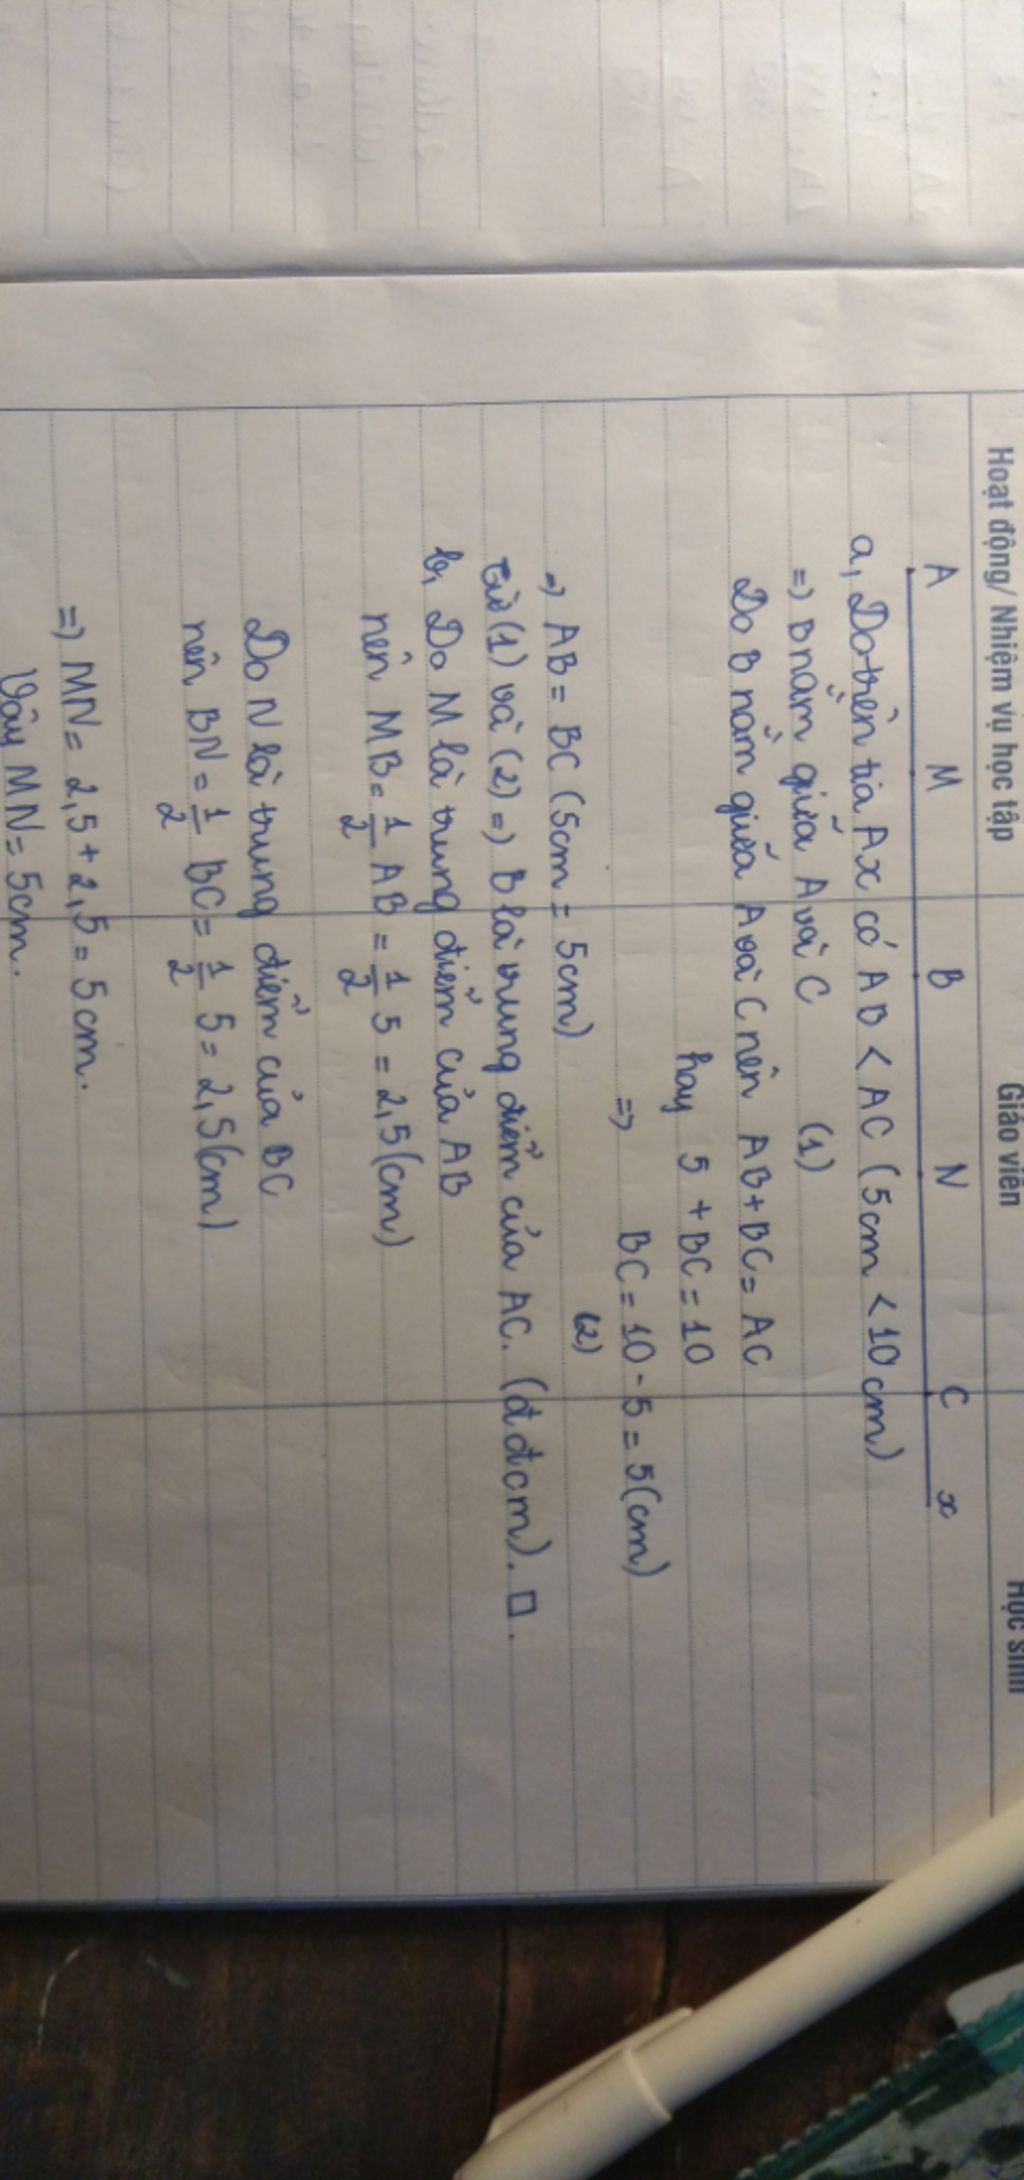 Hoạt động/ Nhiệm vụ học tập Giáo viên Học sinh
A M B N C x
a, Do trên tia Ax có AB < AC (5cm < 10 cm)
=) B nằm giữa A và C (1)
Do B nằm giữa A và C nên AB+BC= AC
hay 5 + BC = 10
=) BC = 10 - 5 = 5(cm)
(2)
=) AB = BC (5cm = 5cm)
Từ (1) và (2) =) B là trung điểm của AC. (đđcm). □.
b, Do M là trung điểm của AB
nên MB = 1/2 AB = 1/2 5 = 2,5(cm)
Do N là trung điểm của BC
nên BN = 1/2 BC = 1/2 5 = 2,5(cm)
=) MN = 2,5 + 2,5 = 5 cm.
Vậy MN = 5cm.